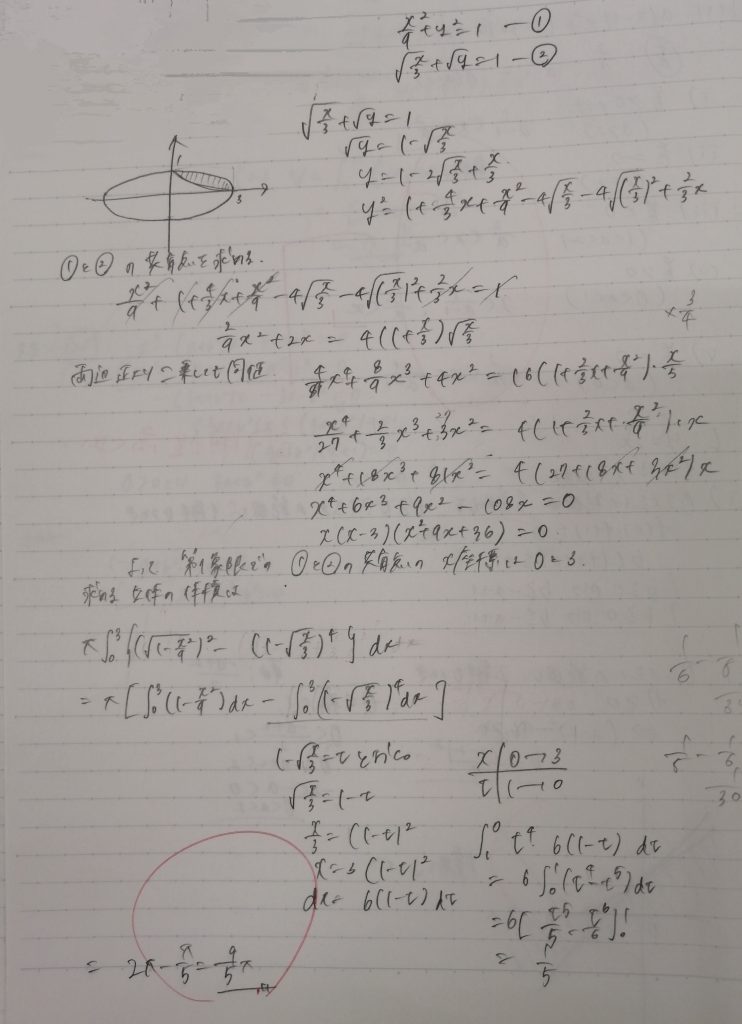 x²/9 + y² = 1 — ①
√(x/3) + √y = 1 — ②
√(x/3) + √y = 1
√y = 1 - √(x/3)
y = 1 - 2√(x/3) + x/3
y² = 1 + 4/3 x + x²/9 - 4√(x/3) - 4√(x/3)² + 2/3 x
1
3
①と②の共有点を求める.
x²/9 + 1 + 4/3 x + x²/9 - 4√(x/3) - 4√(x/3)² + 2/3 x = 1
× 3/4
2/9 x² + 2x = 4(1 + x/3)√(x/3)
両辺正より二乗しても同値
4/81 x⁴ + 8/9 x³ + 4x² = 16(1 + 2/3 x + x²/9)・x/3
x⁴/27 + 2/3 x³ + 3x² = 4(1 + 2/3 x + x²/9)・x
x⁴ + 18x³ + 81x² = 4(27 + 18x + 3x²)x
x⁴ + 6x³ + 9x² - 108x = 0
x(x-3)(x²+9x+36) = 0
よって 第1象限での ①と②の共有点の x座標は 0と3.
求める立体の体積は
π∫₀³{(√(1-x²/9))² - (1-√(x/3))⁴} dx
= π[∫₀³(1-x²/9)dx - ∫₀³(1-√(x/3))⁴dx]
1/6 - 1/5
1/5 - 1/6
1/30
1-√(x/3) = t とおくと
x | 0→3
t | 1→0
√(x/3) = 1-t
x/3 = (1-t)²
∫₁⁰ t⁴ 6(1-t) dt
x = 3(1-t)²
= 6∫₀¹(t⁴-t⁵)dt
dx = 6(1-t)dt
= 6[t⁵/5 - t⁶/6]₀¹
= 1/5
= 2π - π/5 = 9/5 π